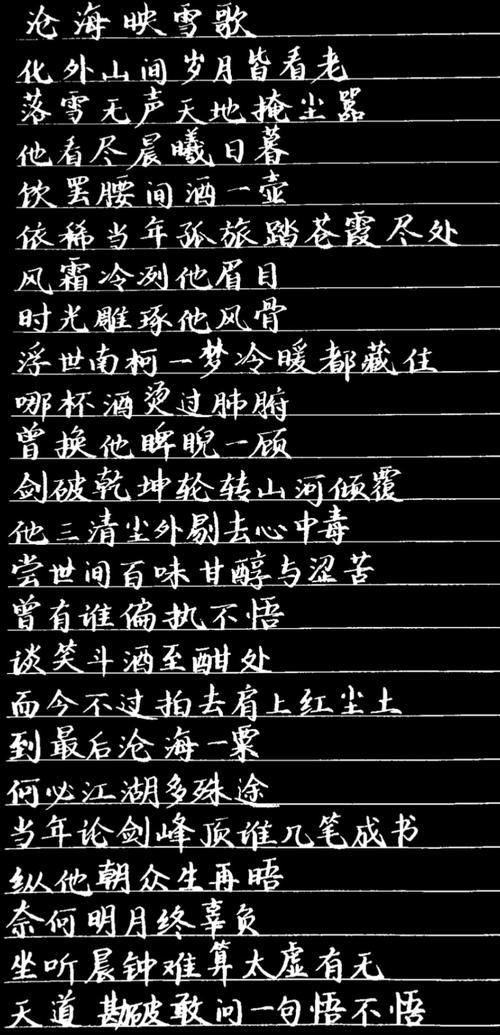 沧海映雪歌
化外山间岁月皆看老
落雪无声天地掩尘嚣
他看尽晨曦日暮
饮罢腰间酒一壶
依稀当年孤旅踏苍霞尽处
风霜冷冽他眉目
时光雕琢他风骨
浮世南柯一梦冷暖都藏住
哪杯酒烫过肺腑
曾换他睥睨一顾
剑破乾坤轮转山河倾覆
他三清尘外剔去心中毒
尝世间百味甘醇与涩苦
曾有谁偏执不悟
谈笑斗酒至酣处
而今不过拍去肩上红尘土
到最后沧海一粟
何必江湖多殊途
当年论剑峰顶谁几笔成书
纵他朝众生再晤
奈何明月终辜负
坐听晨钟难算太虚有无
天道勘破敢问一句悟不悟